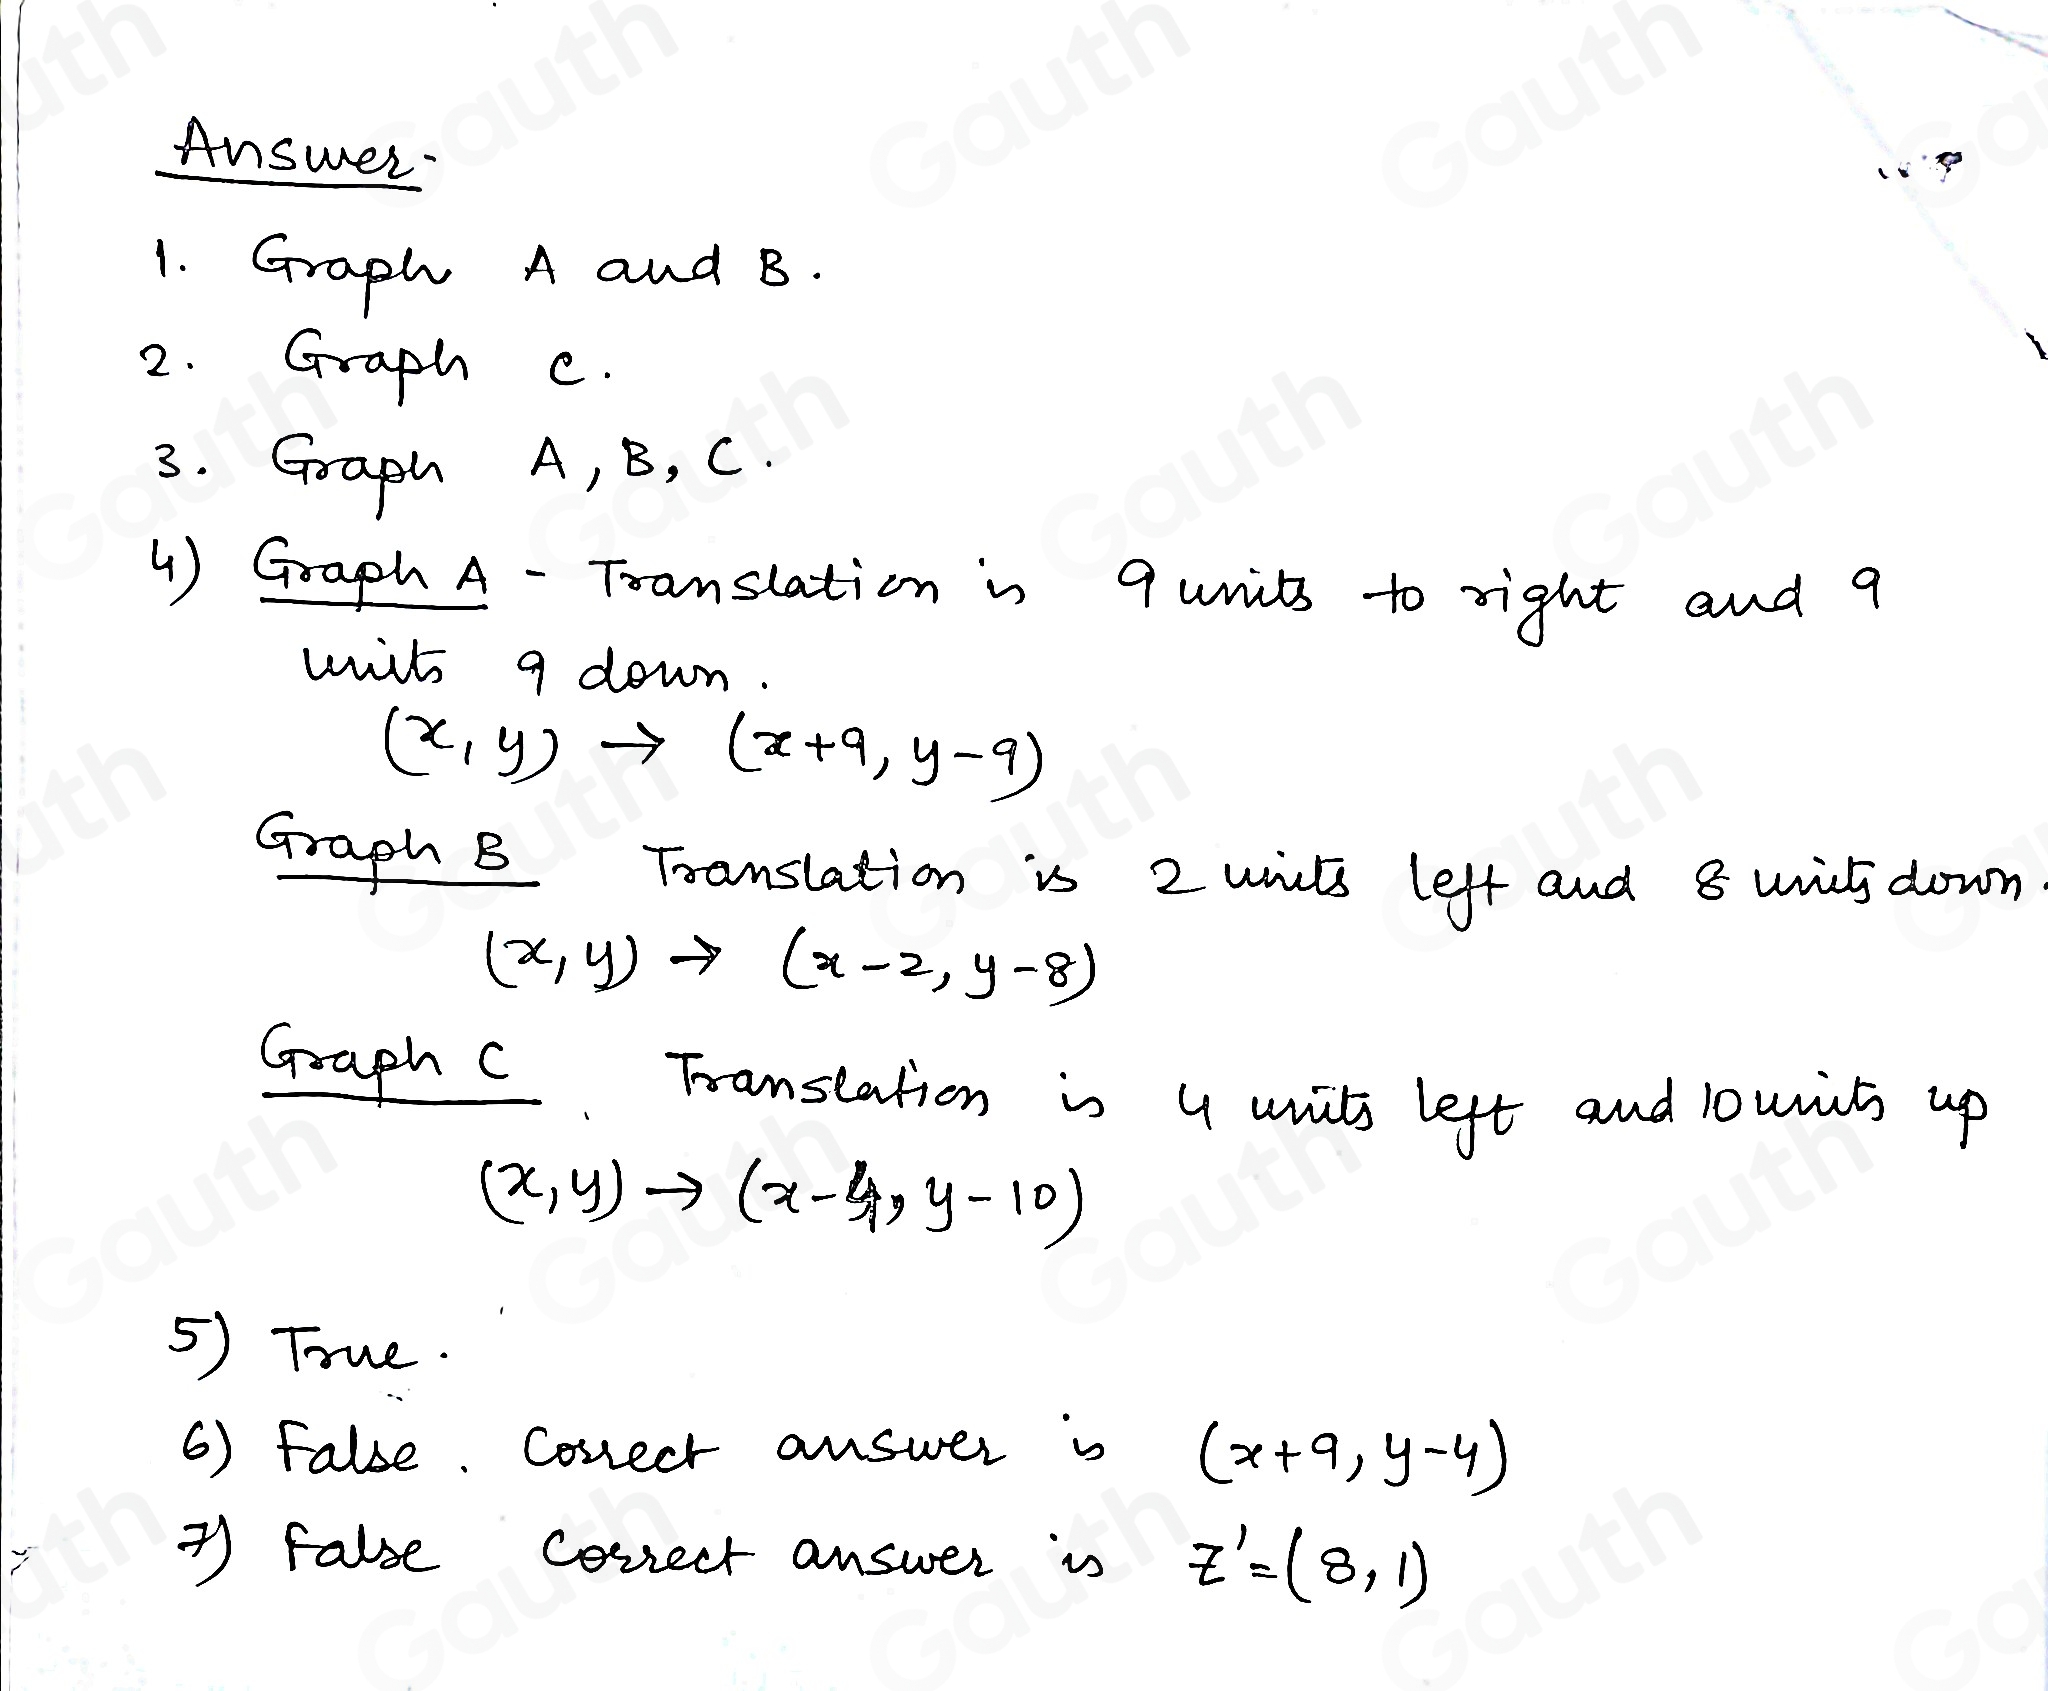 Answer-
1. Graph A and B.
2. Graph C.
3. Graph A, B, C.
4) Graph A - Translation is 9 units to right and 9
units 9 down.
(x, y) → (x+9, y-9)
Graph B Translation is 2 units left and 8 units down.
(x, y) → (x-2, y-8)
Graph C. Translation is 4 units left and 10 units up
(x, y) → (x-4, y-10)
5) True.
6) False. Correct answer is (x+9, y-4)
7) False Correct answer is Z'=(8,1)